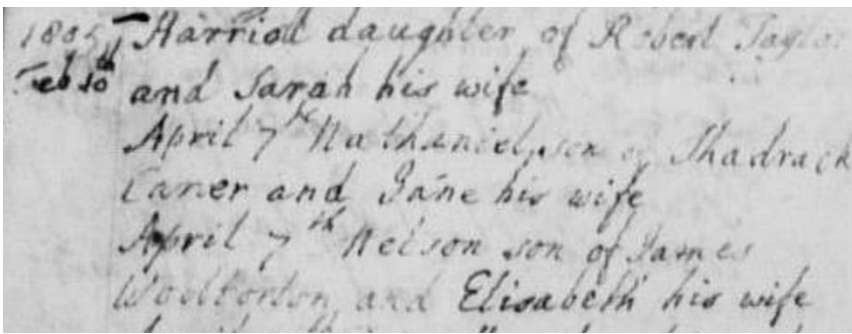 1805 Harriot daughter of Robert Taylor
Feb 10th and Sarah his wife
April 7th Nathaniel, son of Shadrack
Caner and Jane his wife
April 7th Nelson son of James
Woolterton and Elisabeth his wife